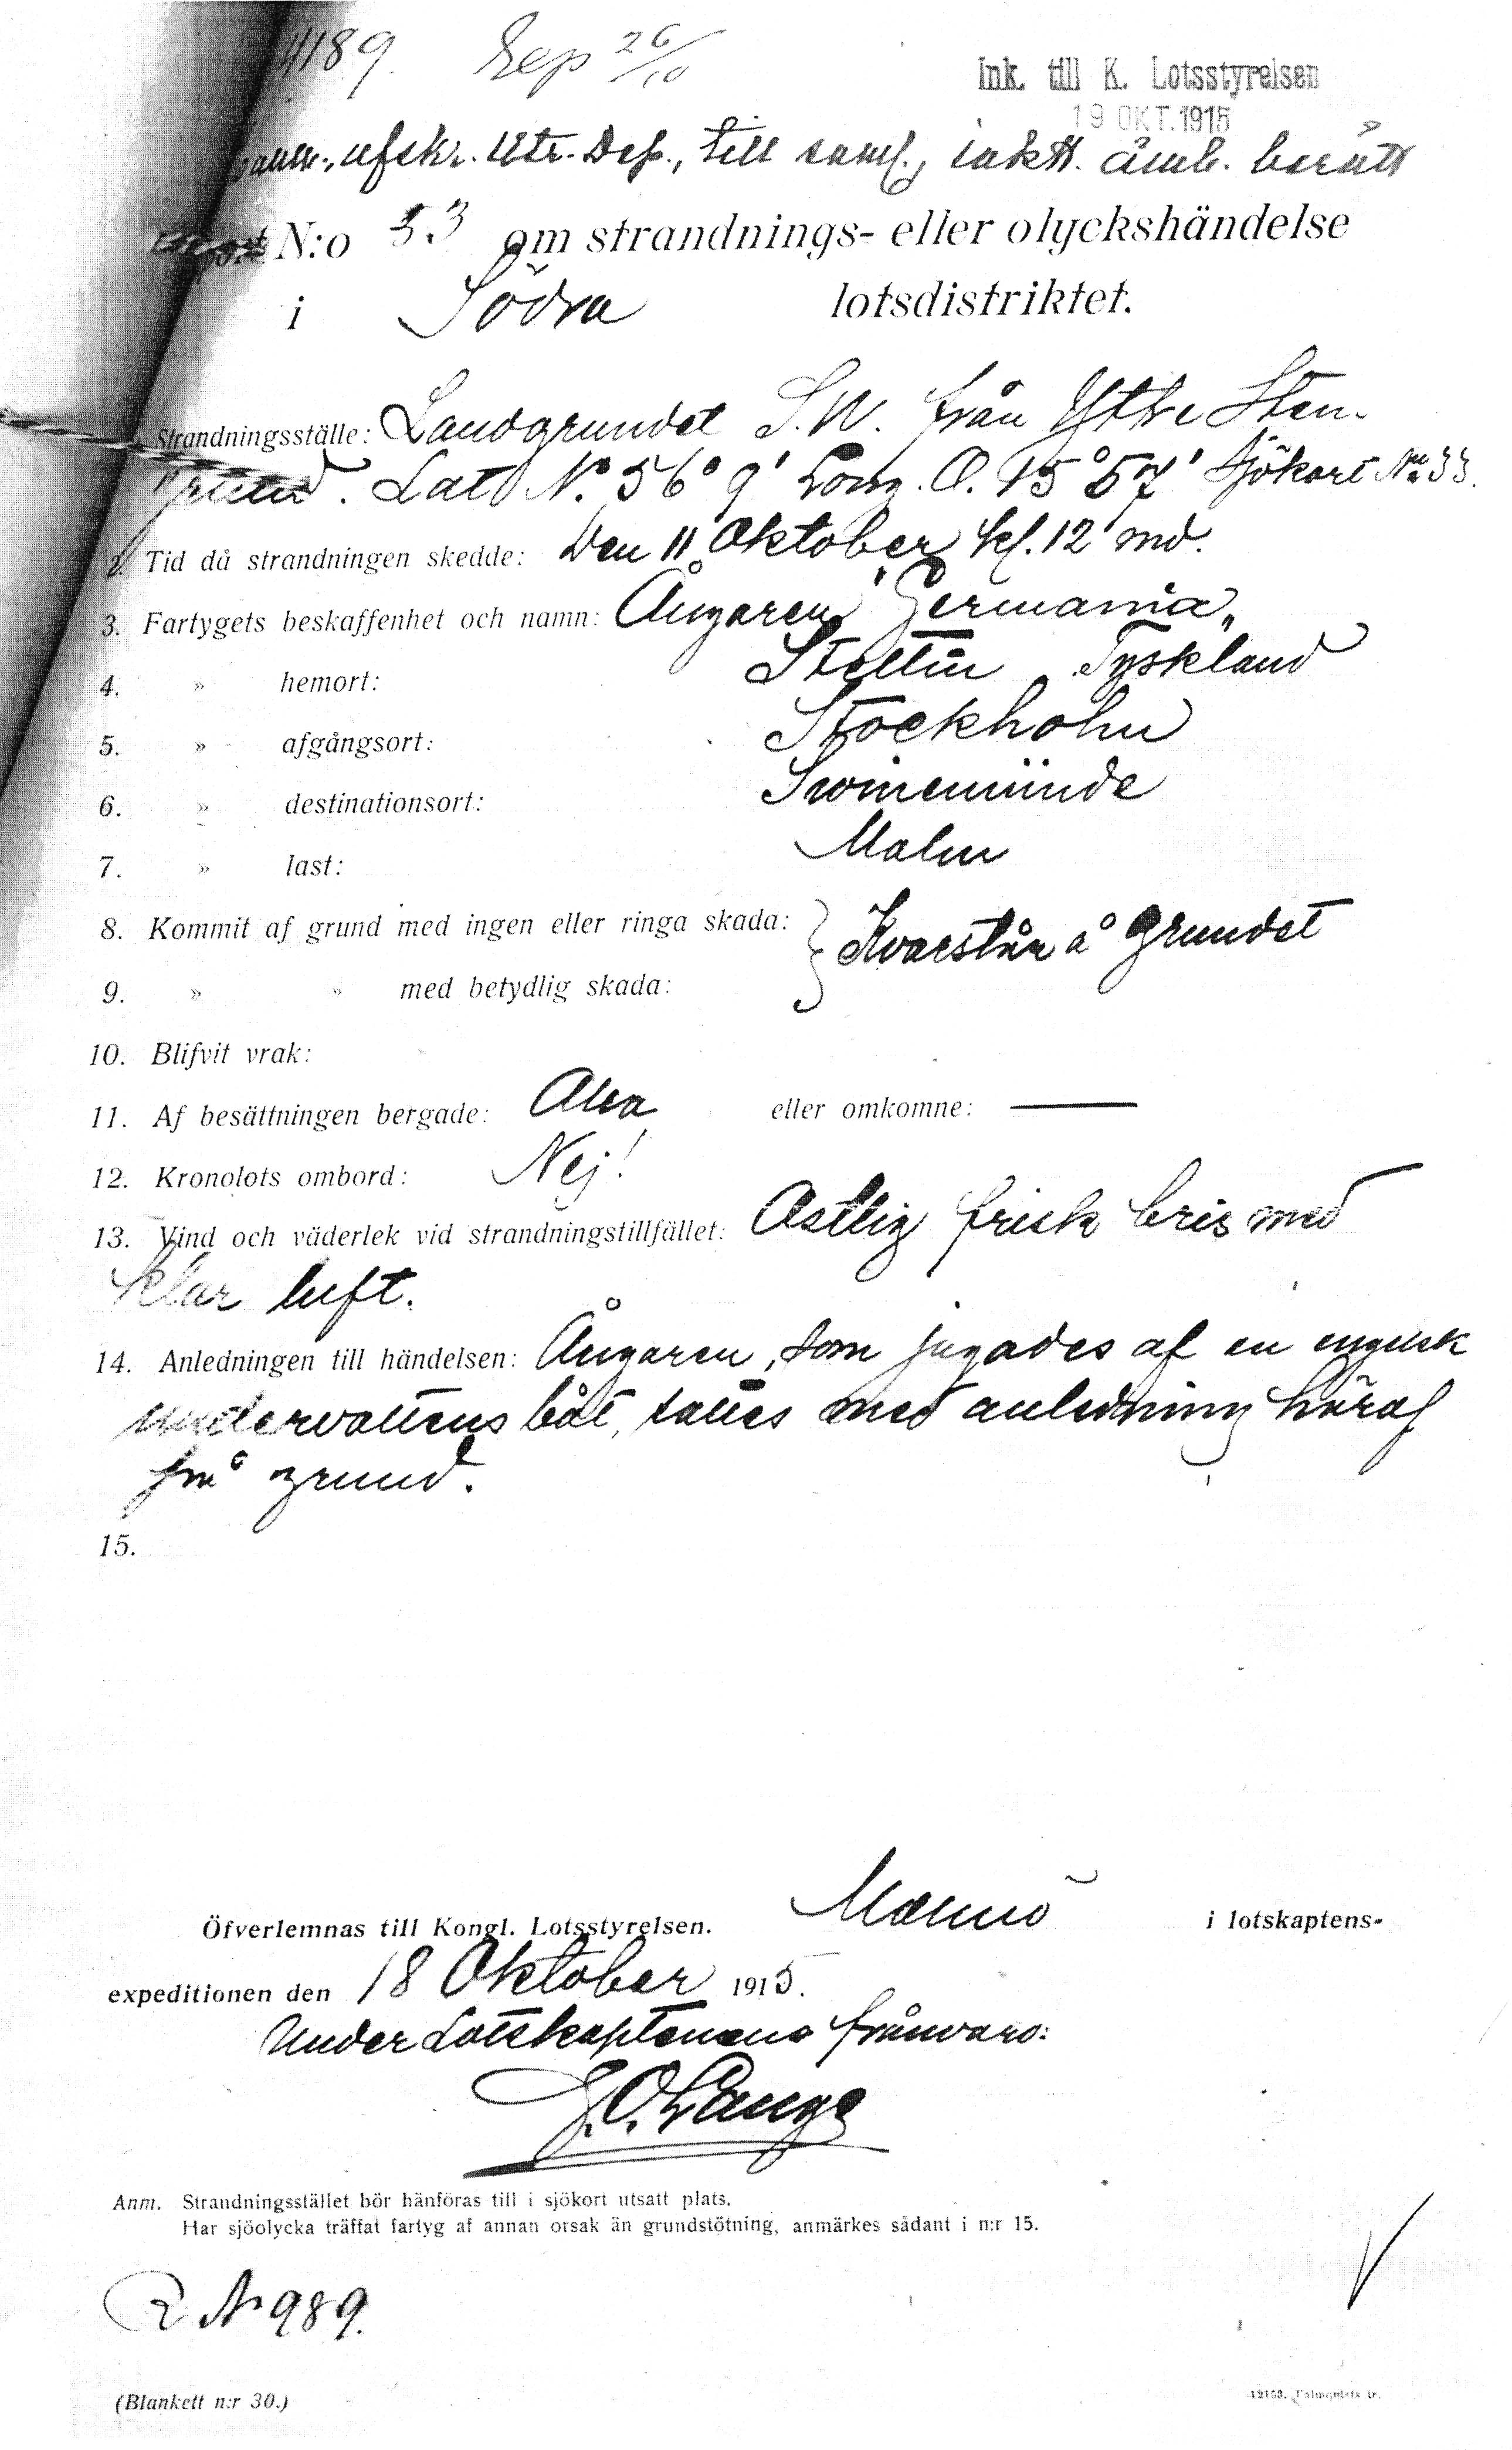 4189. Exp 26/10
Ink. till K. Lotsstyrelsen
19 OKT. 1915
afskr. Utr. Dep., till saml., intått. ämb. berätt
N:o 53 om strandnings- eller olyckshändelse
i Södra lotsdistriktet.
Strandningsställe: Landgrundet S.W. från Yttre Sten-
grund. Lat N. 56° 9' Long. O. 15° 57' Sjökort No 33.
2. Tid då strandningen skedde: Den 11 Oktober kl. 12 md.
3. Fartygets beskaffenhet och namn: Ångaren "Germania"
4. » hemort: Stettin Tyskland
5. » afgångsort: Stockholm
6. » destinationsort: Swinemünde
7. » last: Malm
8. Kommit af grund med ingen eller ringa skada: } Kvarstår å Grundet
9. » » med betydlig skada:
10. Blifvit vrak:
11. Af besättningen bergade: Alla eller omkomne: —
12. Kronolots ombord: Nej!
13. Vind och väderlek vid strandningstillfället: Ostlig frisk bris med
klar luft.
14. Anledningen till händelsen: Ångaren, som jagades af en engelsk
undervattens båt, sattes med anledning häraf
på grund.
15.
Öfverlemnas till Kongl. Lotsstyrelsen. Malmö i lotskaptens-
expeditionen den 18 Oktober 1915.
Under Lotskaptenens frånvaro:
J.O. Lange
Anm. Strandningsstället bör hänföras till i sjökort utsatt plats.
Har sjöolycka träffat fartyg af annan orsak än grundstötning, anmärkes sådant i n:r 15.
R No 989.
(Blankett n:r 30.)
12153. Palmquists tr.